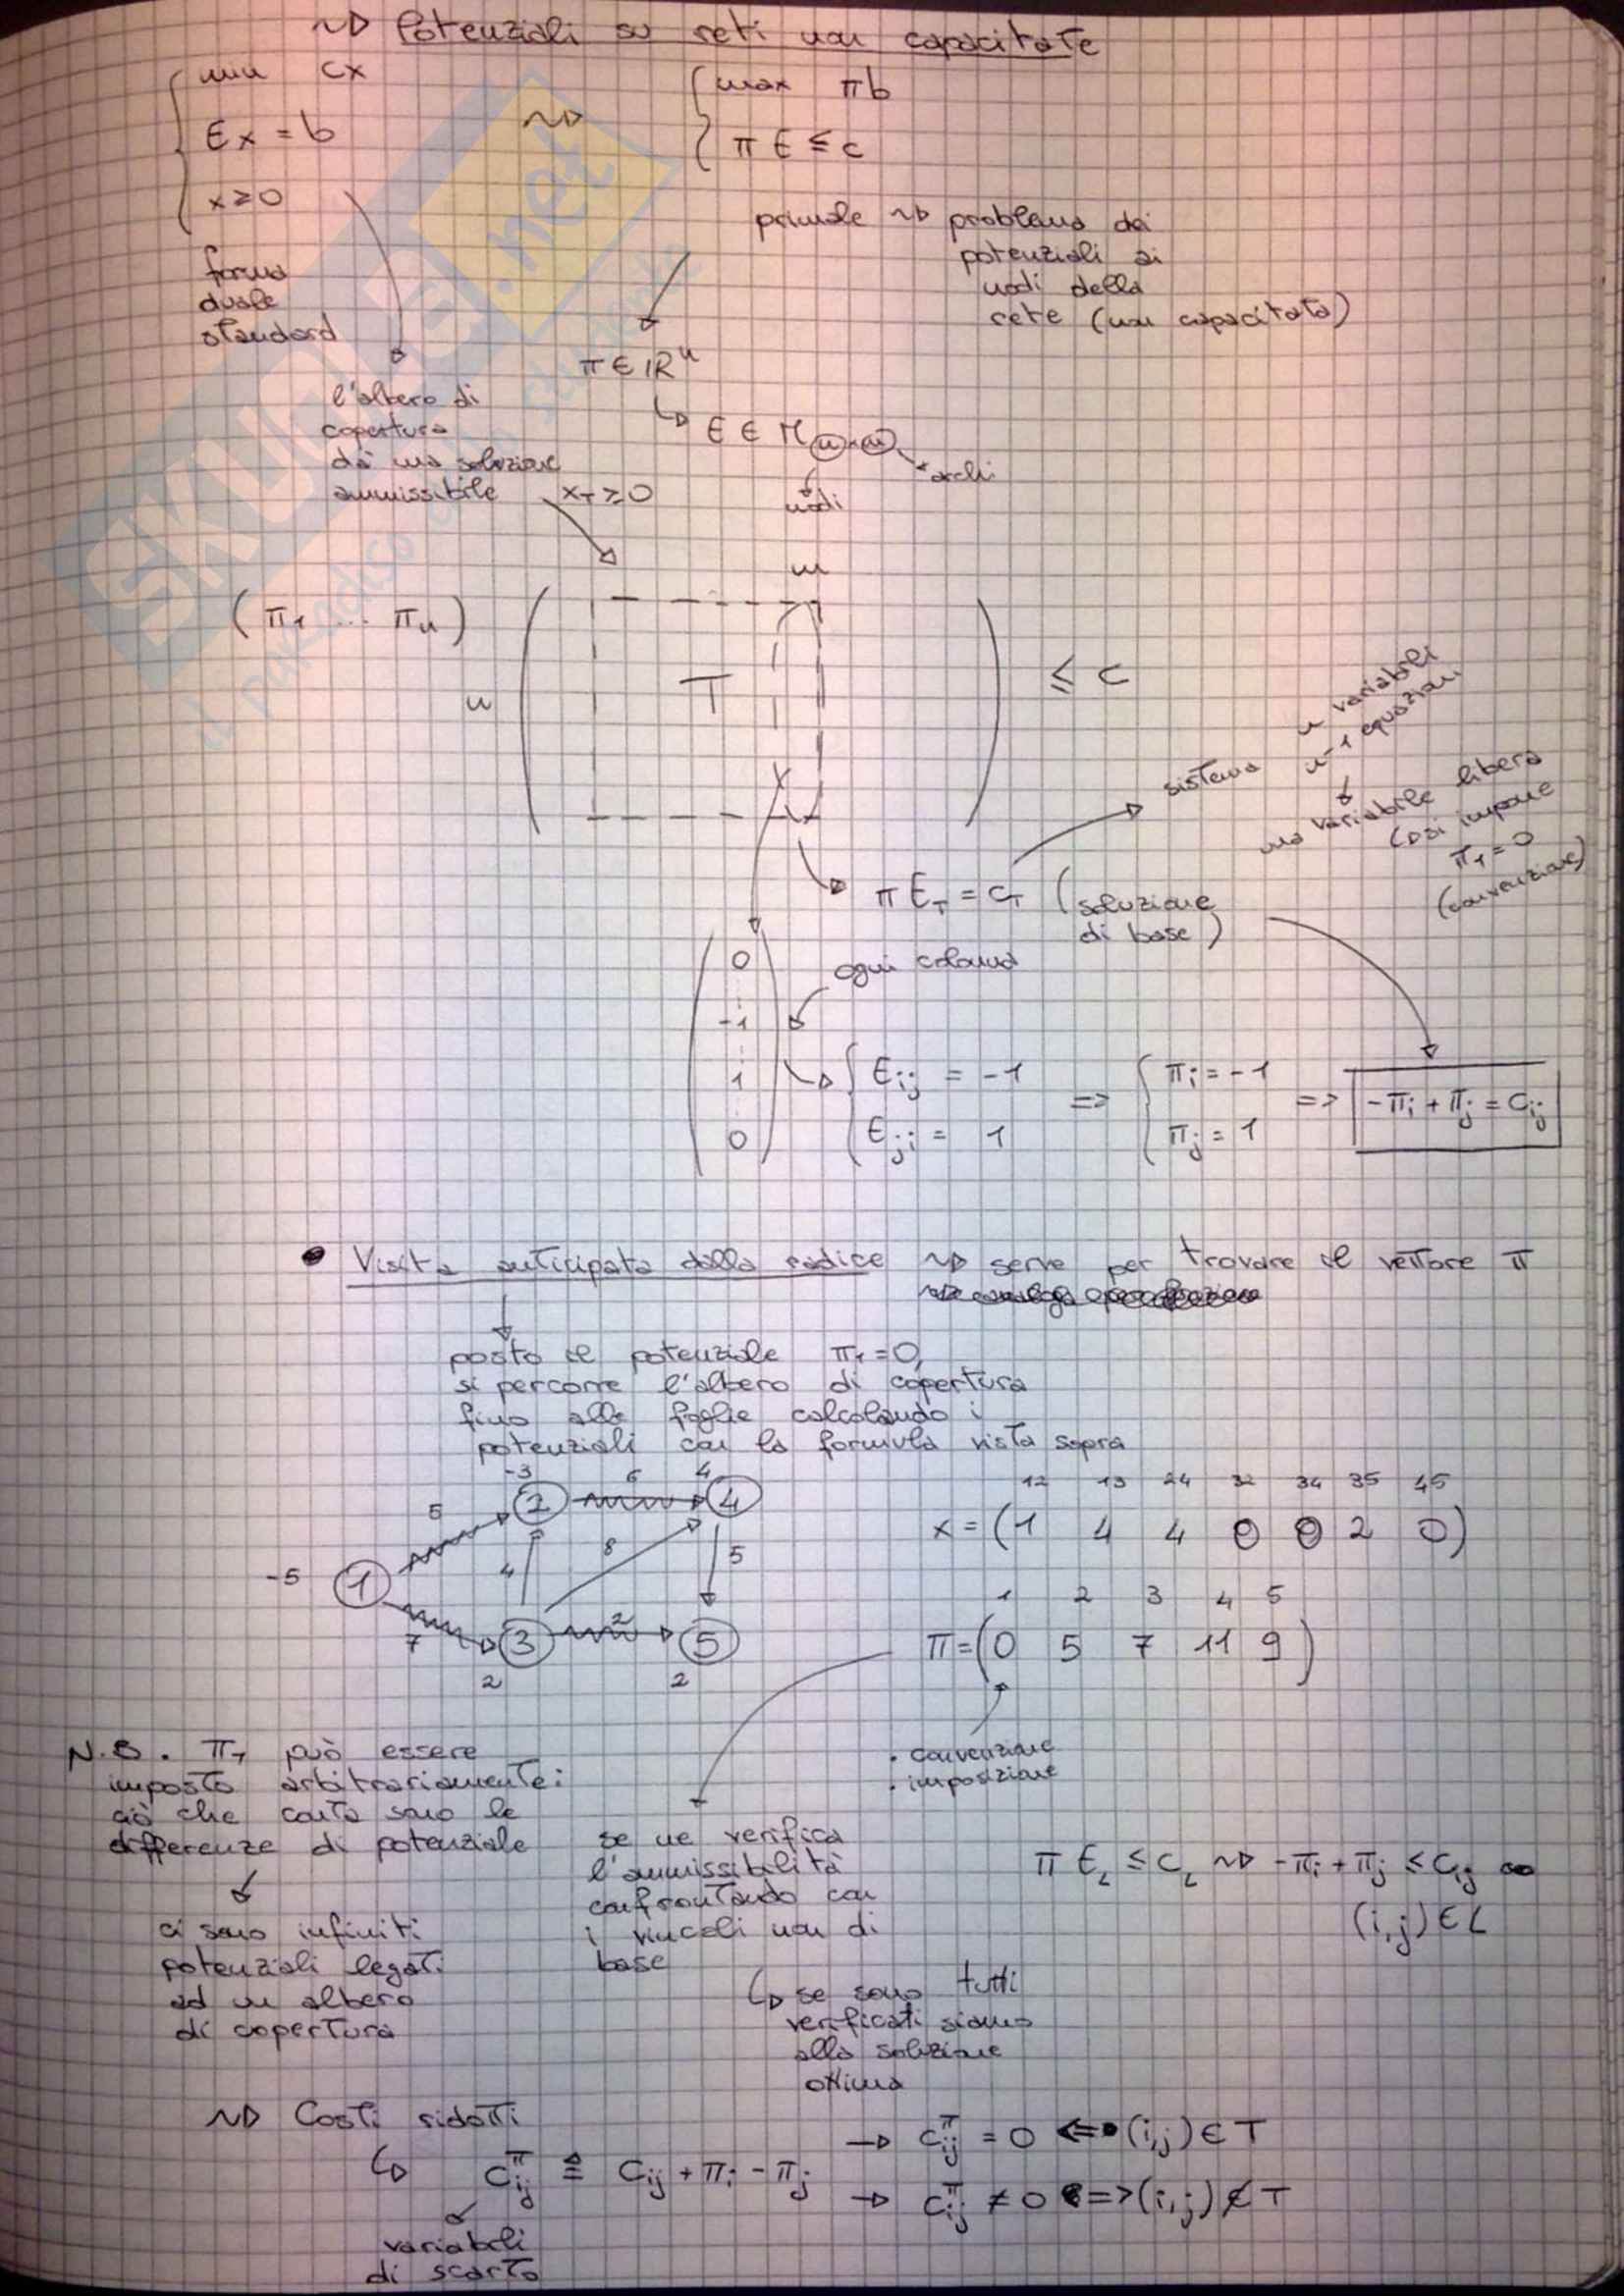 ~> Potenziali su reti non capacitate
min cx
Ex = b
x ≥ 0
~>
max πb
πE ≤ c
forma
duale
standard
primale ~> problema dei
potenziali ai
nodi della
rete (non capacitata)
l'albero di
copertura
dà una soluzione
ammissibile x_T ≥ 0
π ∈ ℝⁿ
↳ E ∈ M n×m
archi
nodi
m
(π1 ... πn)
n
T
≤ c
sistema
n variabili
n-1 equazioni
una variabile libera
(si impone
π1 = 0
(convenzione)
π E_T = c_T (soluzione
di base)
ogni colonna
0
-1
1
0
E_ij = -1
E_ji = 1
=>
π_i = -1
π_j = 1
=> -π_i + π_j = C_ij
• Visita anticipata dalla radice ~> serve per trovare il vettore π
posto il potenziale π1 = 0,
si percorre l'albero di copertura
fino alle foglie calcolando i
potenziali con la formula vista sopra
-3 6 4
5 2 4
-5 1 4 8 5
7 3 2 5
2 2
12 13 24 32 34 35 45
x = (1 4 4 0 0 2 0)
1 2 3 4 5
π = (0 5 7 11 9)
• convenzione
• imposizione
N.B. π1 può essere
imposto arbitrariamente:
ciò che conta sono le
differenze di potenziale
ci sono infiniti
potenziali legati
ad un albero
di copertura
se ne verifica
l'ammissibilità
confrontando con
i vincoli non di
base
↳ se sono tutti
verificati siamo
alla soluzione
ottima
π E_L ≤ C_L ~> -π_i + π_j ≤ C_ij
(i,j) ∈ L
~> Costi ridotti
↳ c_ij^π ≜ c_ij + π_i - π_j
variabili
di scarto
→ c_ij^π = 0 <=> (i,j) ∈ T
→ c_ij^π ≠ 0 <=> (i,j) ∉ T
SKUOLA.net
il paradiso dello studente